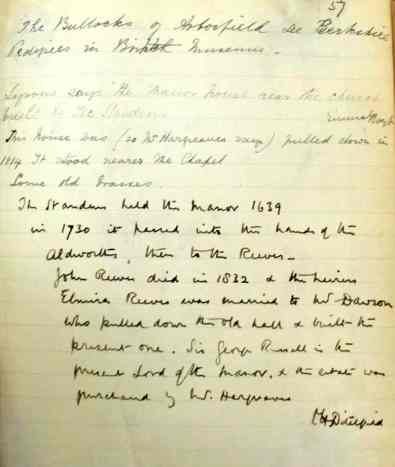 57
The Bullocks of Arborfield Co Berkshire
Pedigrees in British Museum -
Lysons says the Manor house near the church
built by the Standens
This house was (so Mr Hargreaves says) pulled down in
1814 It stood nearer the Chapel
Some old brasses.
The Standens held the Manor 1639
in 1730 it passed into the hands of the
Aldworths, then to the Reeves -
John Reeves died in 1832 & the heiress
Elmira Reeves was married to Mr Dawson
who pulled down the old hall & built the
present one. Sir George Russell is the
present Lord of the Manor, & the estate was
purchased by Mr. Hargreaves
PH Ditchfield